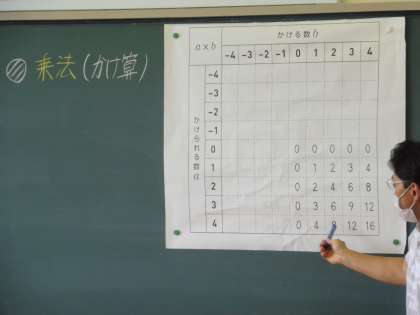 ◎ 乗法(かけ算)
a×b
かける数b
-4 -3 -2 -1 0 1 2 3 4
かけられる数a
-4
-3
-2
-1
0 0 0 0 0 0
1 0 1 2 3 4
2 0 2 4 6 8
3 0 3 6 9 12
4 0 4 8 12 16